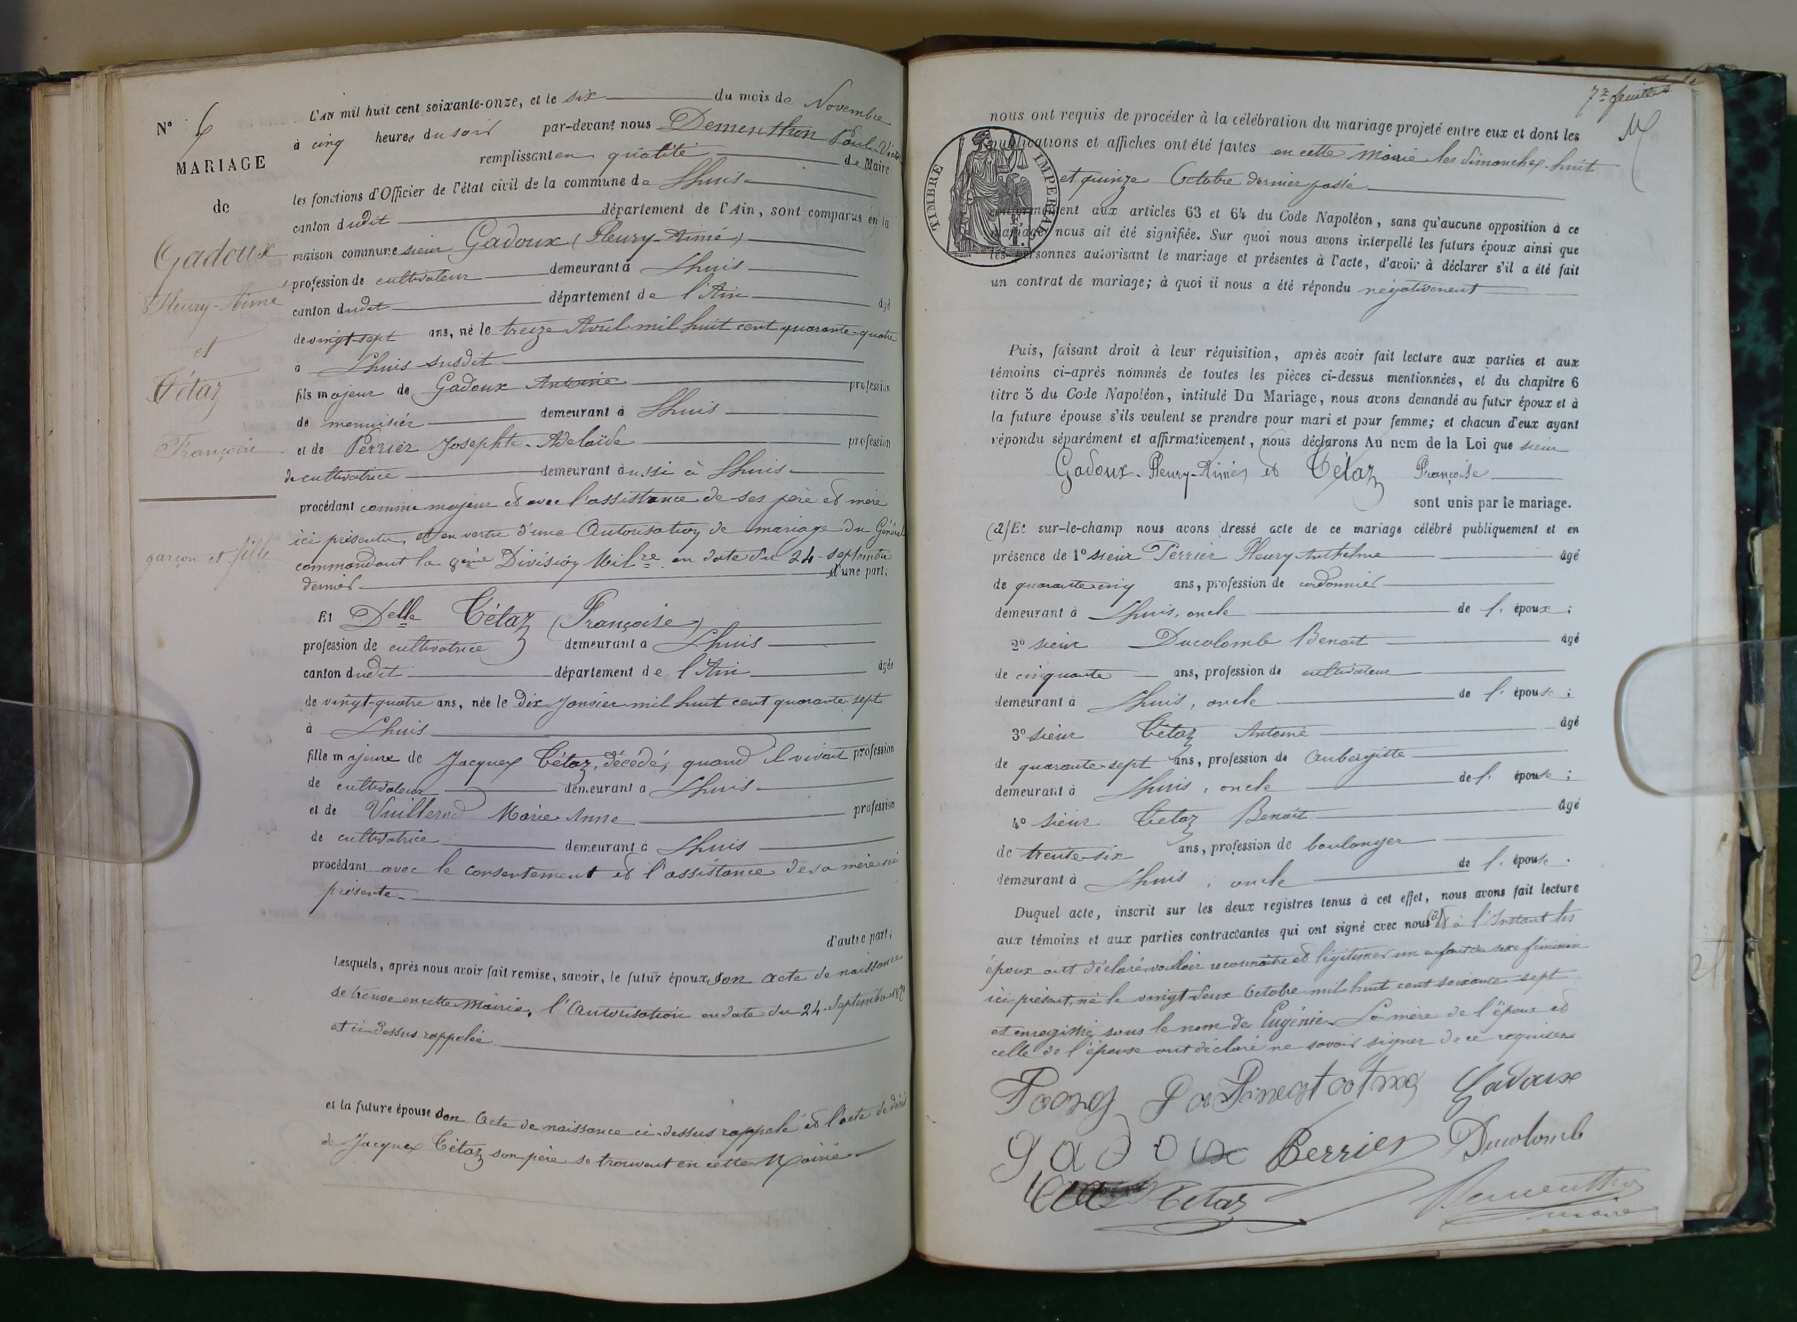 N° 6
MARIAGE
de
Gadoux
Fleury-Aimé
et
Tétaz
Françoise
garçon et fille
L'AN mil huit cent soixante-onze, et le six du mois de Novembre
à cinq heures du soir par-devant nous Dementhon Paul
remplissant en qualité de Maire
les fonctions d'Officier de l'état civil de la commune de Lhuis
canton dudit département de l'Ain, sont comparus en la
maison commune sieur Gadoux (Fleury-Aimé)
profession de cultivateur demeurant à Lhuis
canton dudit département de l'Ain âgé
de vingt-sept ans, né le treize Avril mil huit cent quarante-quatre
à Lhuis susdit
fils majeur de Gadoux Antoine profession
de menuisier demeurant à Lhuis
et de Perrier Josephte-Adelaïde profession
de cultivatrice demeurant aussi à Lhuis
procédant comme majeur et avec l'assistance de ses père et mère
ici présents, et en vertu d'une Autorisation de mariage du Général
commandant la 8eme Division Milre en date du 24 septembre
dernier d'une part.
Et Delle Tétaz (Françoise)
profession de cultivatrice demeurant à Lhuis
canton dudit département de l'Ain âgée
de vingt-quatre ans, née le Dix Janvier mil huit cent quarante sept
à Lhuis
fille majeure de Jacques Tétaz, décédé, quand il vivait profession
de cultivateur demeurant à Lhuis
et de Vuillerod Marie Anne profession
de cultivatrice demeurant à Lhuis
procédant avec le consentement et l'assistance de sa mère ici
présente.
d'autre part,
Lesquels, après nous avoir fait remise, savoir, le futur époux son acte de naissance
se trouve en cette Mairie, l'Autorisation en date du 24 Septembre 1871
et ci-dessus rappelée
et la future épouse son Acte de naissance ci-dessus rappelé et l'acte de décès
de Jacques Tétaz son père se trouvant en cette Mairie
7e feuillet
nous ont requis de procéder à la célébration du mariage projeté entre eux et dont les
publications et affiches ont été faites en cette Mairie les dimanches huit
et quinze Octobre dernier passé
TIMBRE IMPERIAL
conformément aux articles 63 et 64 du Code Napoléon, sans qu'aucune opposition à ce
mariage nous ait été signifiée. Sur quoi nous avons interpellé les futurs époux ainsi que
les personnes autorisant le mariage et présentes à l'acte, d'avoir à déclarer s'il a été fait
un contrat de mariage; à quoi il nous a été répondu négativement
Puis, faisant droit à leur réquisition, après avoir fait lecture aux parties et aux
témoins ci-après nommés de toutes les pièces ci-dessus mentionnées, et du chapitre 6
titre 5 du Code Napoléon, intitulé Du Mariage, nous avons demandé au futur époux et à
la future épouse s'ils veulent se prendre pour mari et pour femme; et chacun d'eux ayant
répondu séparément et affirmativement, nous déclarons Au nom de la Loi que sieur
Gadoux-Fleury-Aimé et Tétaz Françoise
sont unis par le mariage.
(2) Et sur-le-champ nous avons dressé acte de ce mariage célébré publiquement et en
présence de 1° sieur Perrier Fleury Anthelme âgé
de quarante-cinq ans, profession de cordonnier
demeurant à Lhuis, oncle de l'époux;
2° sieur Ducolomb Benoit âgé
de cinquante ans, profession de cultivateur
demeurant à Lhuis, oncle de l'épouse;
3° sieur Tétaz Antoine âgé
de quarante-sept ans, profession de Aubergiste
demeurant à Lhuis, oncle de l'épouse;
4° sieur Tétaz Benoit âgé
de trente-six ans, profession de boulanger
demeurant à Lhuis, oncle de l'épouse.
Duquel acte, inscrit sur les deux registres tenus à cet effet, nous avons fait lecture
aux témoins et aux parties contractantes qui ont signé avec nous (2) Et à l'instant les
époux ont déclaré vouloir reconnaitre et légitimer un enfant du sexe féminin
ici présent, né le vingt deux Octobre mil huit cent soixante sept
et enregistré sous le nom de Eugénie. La mère de l'époux et
celle de l'épouse ont déclaré ne savoir signer de ce requises
Gadoux
Gadoux Perrier Ducolomb
Tetaz Dementhon
maire